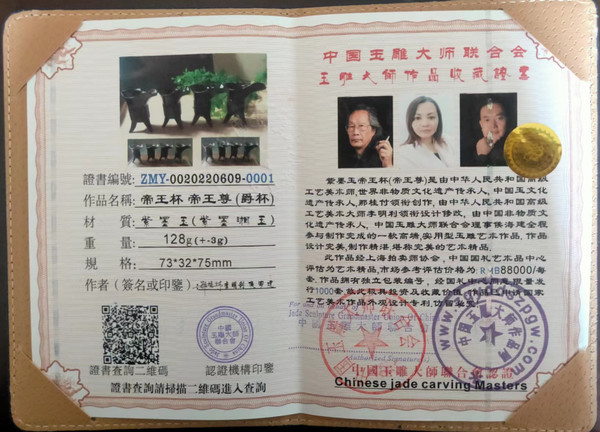 證書編號: ZMY-0020220609-0001
作品名稱: 帝王杯 帝王尊(爵杯)
材 質: 紫墨玉(紫墨渊玉)
重 量: 128g(+-3g)
規 格: 73*32*75mm
作者(簽名或印鑒):
中國
玉雕大師
聯合會
證書查詢二維碼
認證機構印鑒
證書查詢請掃描二維碼進入查詢
中国玉雕大师联合会
玉雕大师作品收藏證書
紫墨玉帝王杯(帝王尊)是由中华人民共和国高级
工艺美术师,世界非物质文化遗产传承人,中国玉文化
遗产传承人,那桂付领衔创作,由中华人民共和国高级
工艺美术大师李明利领衔设计修改,由中国非物质文
化传承人,中国玉雕大师联合会理事侯海冕全程
参与制作完成的一款高端,实用型玉雕艺术作品,作品
设计完美,制作精湛,堪称完美的艺术精品。
此作品经上海拍卖师协会,中国国礼艺术品中心
评估为艺术精品,市场参考评估价格为:RMB88000/每
套,作品拥有独立包装编号,
发行1000套,
家
工艺美术作品外观设计专利,仿冒必究
Jade Sculpture Grandmaster Union Of China
中国玉雕大师联合会
Authorized Signature(s)
中国玉雕大师作品网
中國玉雕大師聯合會認證
Chinese jade carving Masters